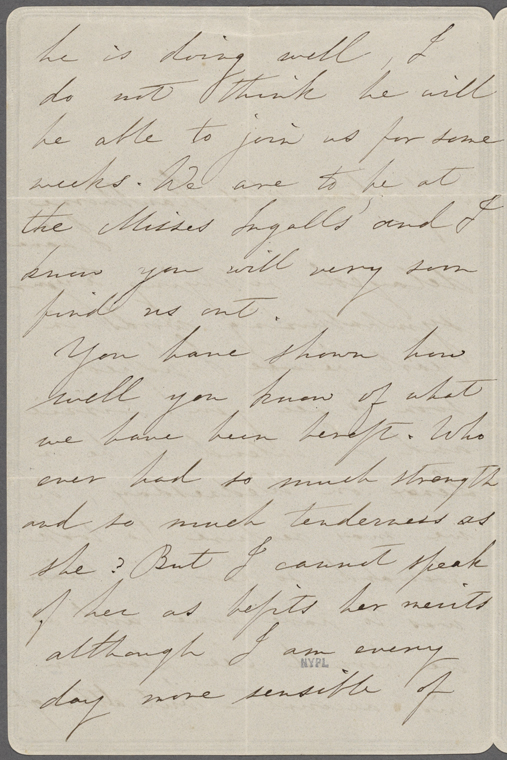 he is doing well, I
do not think he will
be able to join us for some
weeks. We are to be at
the Misses Ingalls' and I
know you will very soon
find us out.
You have shown how
well you know of what
we have been bereft. Who
ever had so much strength
and so much tenderness as
she? But I cannot speak
of her as befits her merits
although I am every
day more sensible of
NYPL